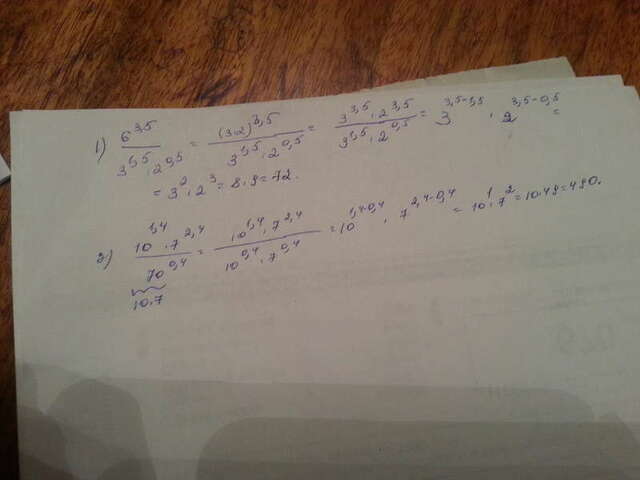 1) 6^3,5 / 3^1,5 · 2^0,5 = (3·2)^3,5 / 3^1,5 · 2^0,5 = 3^3,5 · 2^3,5 / 3^1,5 · 2^0,5 = 3^3,5-1,5 · 2^3,5-0,5 =
= 3^2 · 2^3 = 8·9 = 72.
2) 10^1,4 · 7^2,4 / 70^0,4 = 10^1,4 · 7^2,4 / 10^0,4 · 7^0,4 = 10^1,4-0,4 · 7^2,4-0,4 = 10^1 · 7^2 = 10·49 = 490.
10·7